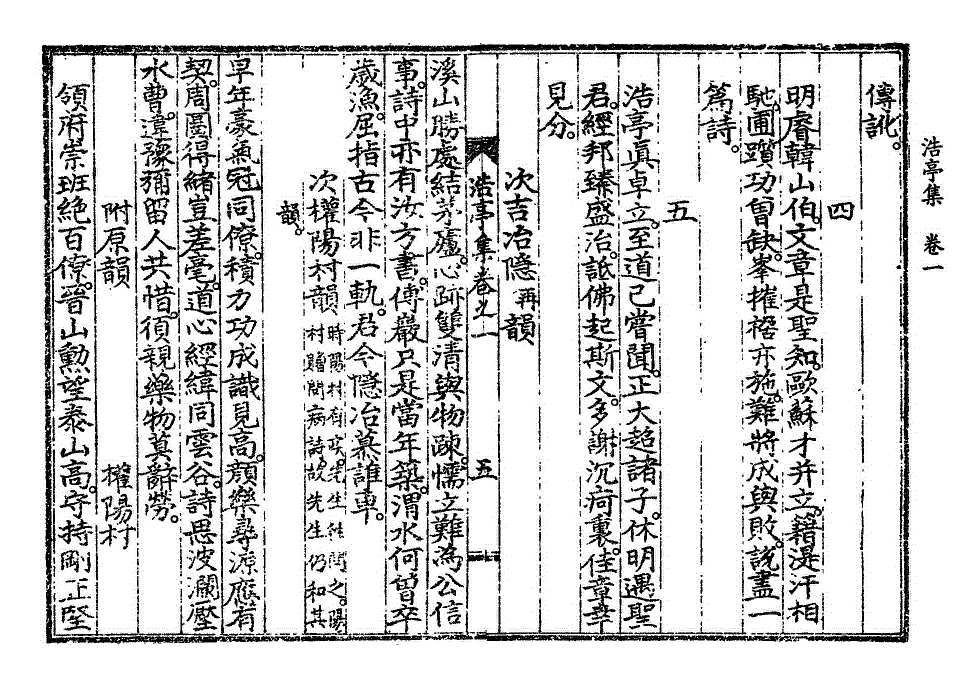 浩亭集 卷一
傳訛。
四
明睿韓山伯。文章是聖知。歐蘇才并立。籍湜汗相
馳。圃躓功曾缺。峯摧禍亦施。難將成與敗。說盡一
篇詩。
五
浩亭眞卓立。至道已嘗聞。正大超諸子。休明遇聖
君。經邦臻盛治。詆佛起斯文。多謝沉痾裏。佳章幸
見分。
次吉冶隱再韻
浩亭集卷之一
五
溪山勝處結茅廬。心跡雙淸與物疎。懦立難爲公信
事。詩中亦有汝方書。傅巖只是當年築。渭水何曾卒
歲漁。屈指古今非一軌。君今隱冶慕誰車。
次權陽村韻時陽村有疾先生往問之。陽村贈問病詩故先生仍和其
韻。
早年豪氣冠同僚。積力功成識見高。顔樂尋源應有
契。周圖得緖豈差毫。道心經緯同雲谷。詩思波瀾壓
水曹。違豫彌留人共惜。須親樂物莫辭勞。
附原韻
權陽村
領府崇班絶百僚。晉山勳望泰山高。守持剛正堅